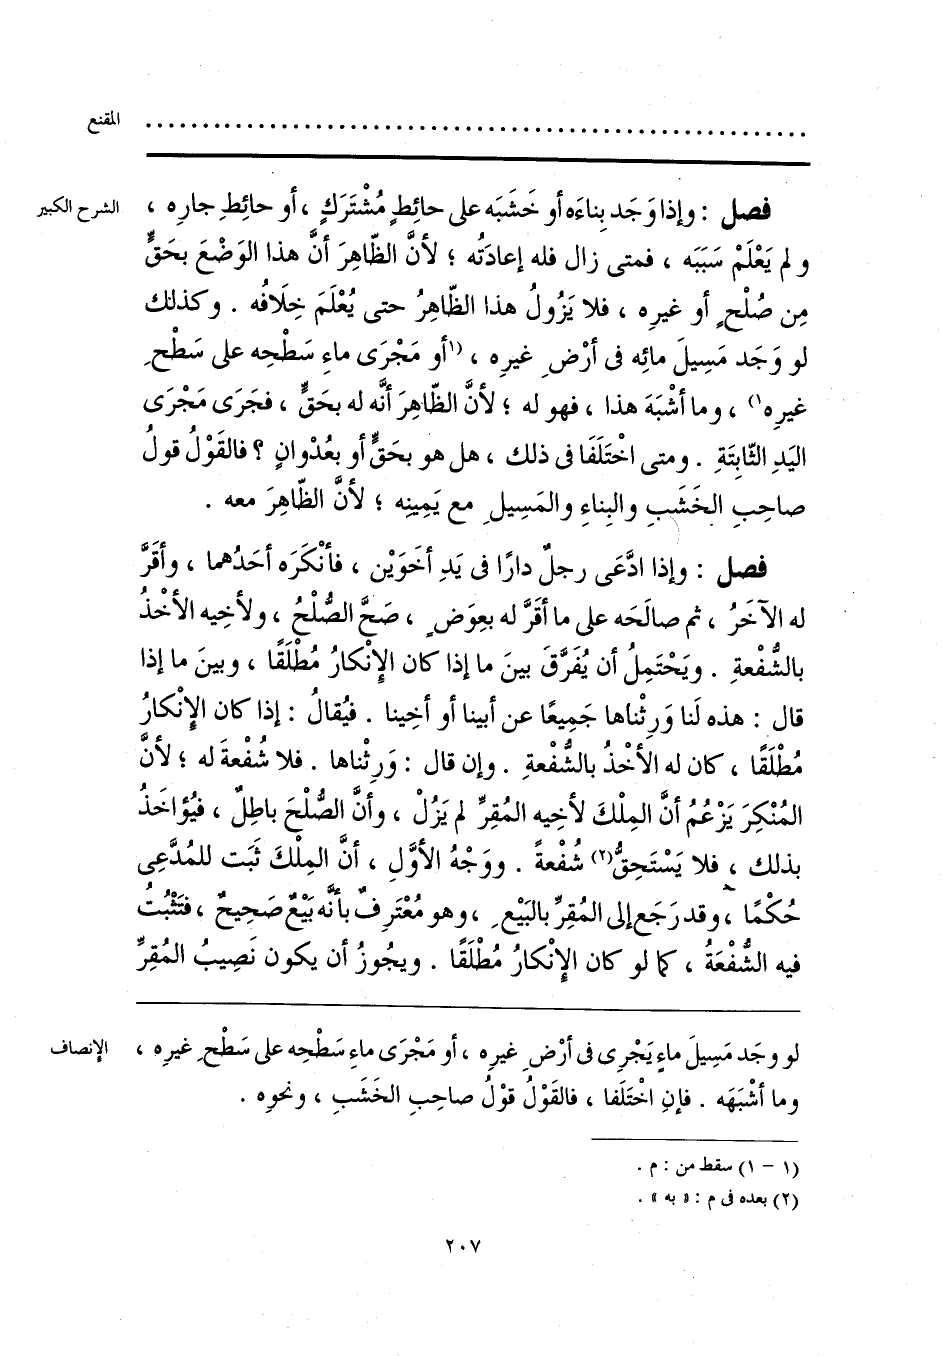 المقنع ................................................................
الشرح الكبير
فصل : وإذا وَجَد بِناءَه أو خَشَبَه على حائِطٍ مُشْتَرَكٍ ، أو حائِطِ جارِه ،
ولم يَعْلَمْ سَبَبَه ، فمتى زال فله إعادَتُه ؛ لأنَّ الظّاهِرَ أنَّ هذا الوَضْعَ بحَقٍّ
مِن صُلْحٍ أو غيرِه ، فلا يَزُولُ هذا الظّاهِرُ حتى يُعْلَمَ خِلَافُه . وكذلك
لو وَجَد مَسِيلَ مائِه فى أرْضِ غيرِه ، (١أو مَجْرَى ماءِ سَطْحِه على سَطْحِ
غيرِه١) ، وما أشْبَهَ هذا ، فهو له ؛ لأنَّ الظّاهِرَ أنَّه له بحَقٍّ ، فجَرَى مَجْرَى
اليَدِ الثّابِتَةِ . ومتى اخْتَلَفَا فى ذلك ، هل هو بحَقٍّ أو بعُدْوانٍ ؟ فالقَوْلُ قولُ
صاحِبِ الخَشَبِ والبِناءِ والمَسِيلِ مع يَمِينِه ؛ لأنَّ الظّاهِرَ معه .
فصل : وإذا ادَّعَى رجلٌ دارًا فى يَدِ أخَوَيْن ، فأنْكَرَه أحَدُهما ، وأقَرَّ
له الآخَرُ ، ثم صالَحَه على ما أقَرَّ له بعِوَضٍ ، صَحَّ الصُّلْحُ ، ولأخِيه الأخْذُ
بالشُّفْعةِ . ويَحْتَمِلُ أن يُفَرَّقَ بينَ ما إذا كان الإِنْكارُ مُطْلَقًا ، وبينَ ما إذا
قال : هذه لَنا وَرِثْناها جَمِيعًا عن أبينا أو أخِينا . فيُقالُ : إذا كان الإِنْكارُ
مُطْلَقًا ، كان له الأخْذُ بالشُّفْعةِ . وإن قال : وَرِثْناها . فلا شُفْعةَ له ؛ لأنَّ
المُنْكِرَ يَزْعُمُ أنَّ المِلْكَ لأخِيه المُقِرِّ لم يَزُلْ ، وأنَّ الصُّلْحَ باطِلٌ ، فيُؤاخَذُ
بذلك ، فلا يَسْتَحِقُّ(٢) شُفْعةً . ووَجْهُ الأوَّلِ ، أنَّ المِلْكَ ثَبَت للمُدَّعِى
حُكْمًا ، وقد رَجَع إلى المُقِرِّ بالبَيْعِ ، وهو مُعْتَرِفٌ بأنَّه بَيْعٌ صَحِيحٌ ، فتَثْبُتُ
فيه الشُّفْعَةُ ، كما لو كان الإِنْكارُ مُطْلَقًا . ويجُوزُ أن يكون نَصِيبُ المُقِرِّ
الإنصاف
لو وجَد مَسِيلَ ماءٍ يَجْرِى فى أرْضِ غيرِه ، أو مَجْرَى ماءِ سَطْحِه على سَطْحِ غيرِه ،
وما أشْبَهَه . فإنِ اخْتَلَفا ، فالقَوْلُ قوْلُ صاحِبِ الخَشَبِ ، ونحوِه .
(١ - ١) سقط من : م .
(٢) بعده فى م : « به » .
٢٠٧